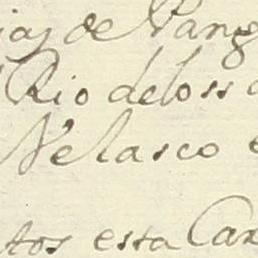 de Pang
Rio deloss
Velasco
tos esta Car